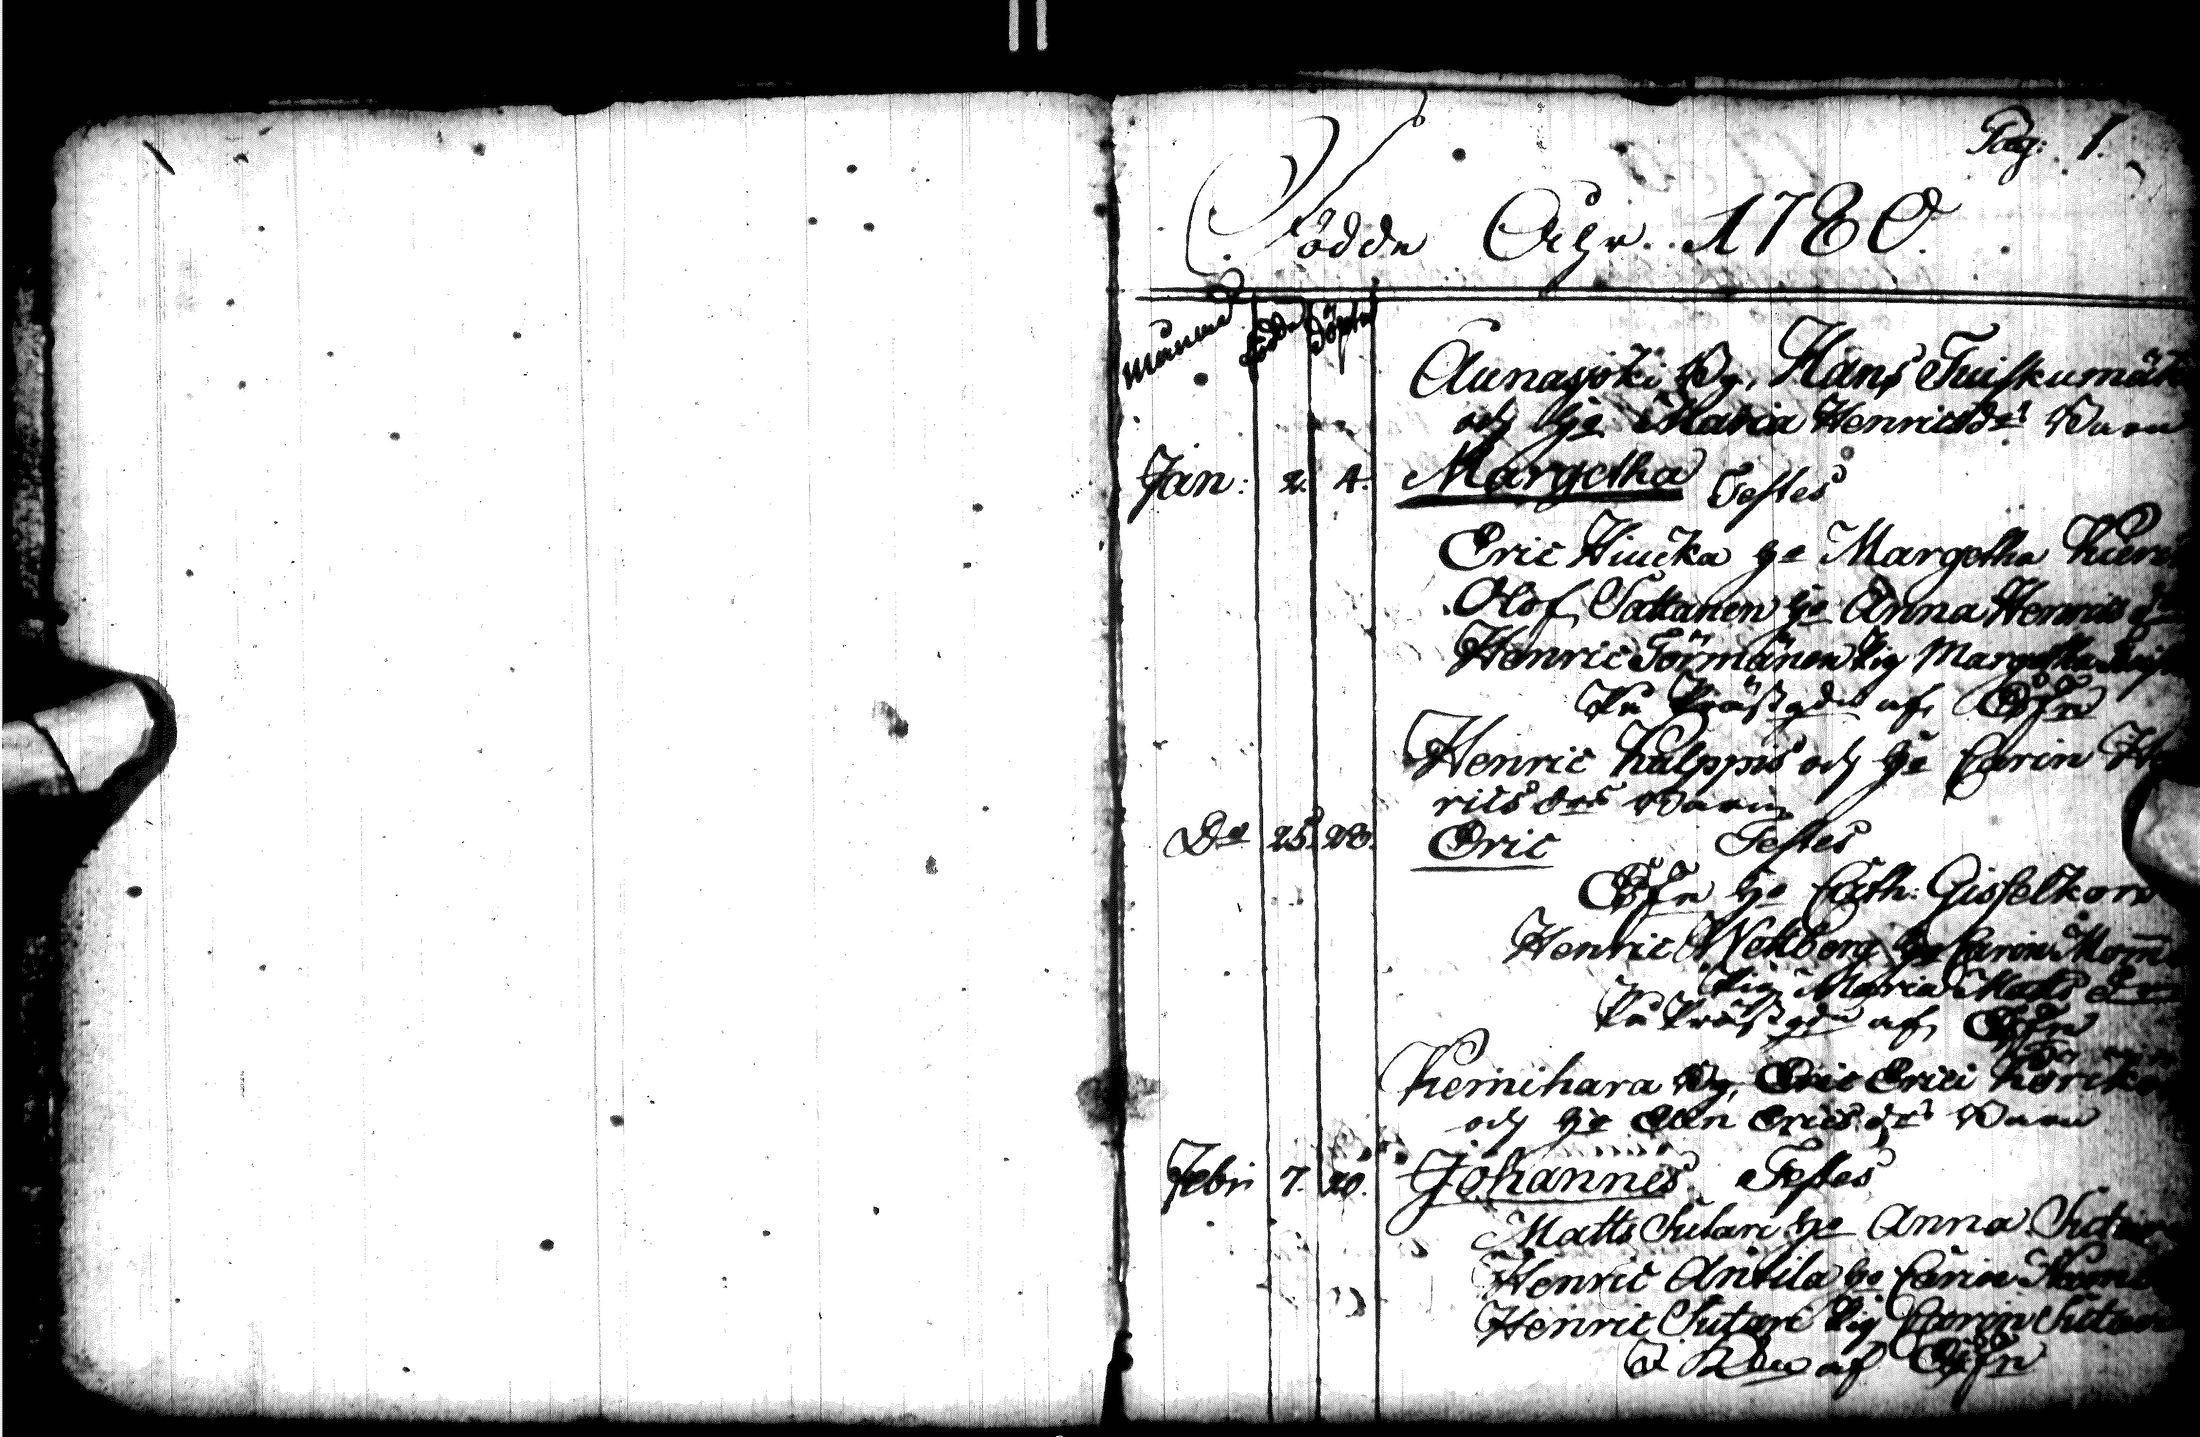 Pag: 1.
Födde Åhr 1780.
månne födde döpte
Aunasjoki By, Hans Tuiskumäki
och h:o Maria Henricsd:rs Barn
Jan: 2. 4. Margetha Testes
Eric Hiucka h:o Margetha
Olof Tattanen h:o Anna Henrics d:r
Henric Törmänen Pig Margetha
På Präßg:dn af
Henric Kulppis och h:o Carin Hen
rics d:rs Barn
D:o 25. 28. Eric Testes
h:o Cath: Gisselkors
Henric Wettberg h:o Carin
Pig Maria Matts d:r
På Präßg:dn af
Kemihara By, Eric Erici
och h:o Elin Erics d:rs Barn
Febr: 7. 20. Johannes. Testes
Matts Sutari h:o Anna Sutari
Henric Antila h:o Carin
Henric Sutari Pig Carin Sutari
af